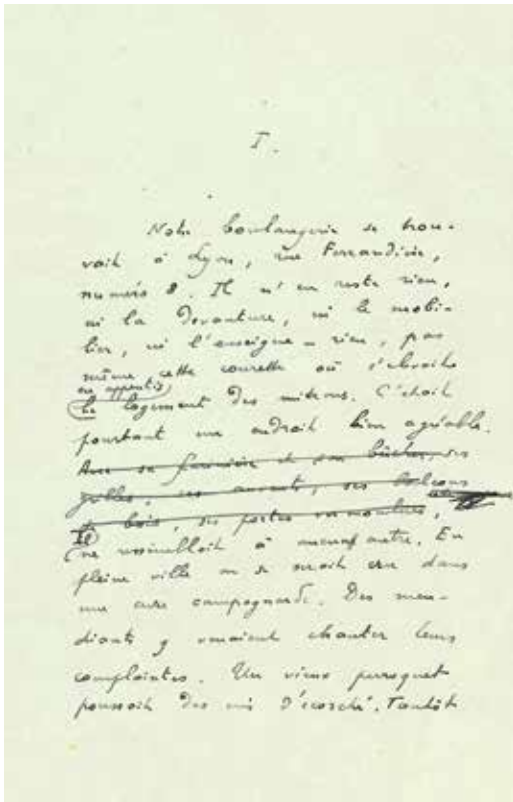 I.
Notre boulangerie se trou-
vait à Lyon, rue Ferrandière,
numéro 8. Il n'en reste rien,
ni la devanture, ni le mobi-
lier, ni l'enseigne – rien, pas
même cette courette où s'abritait
en appentis
le logement des mitrons. C'était
pourtant un endroit bien agréable.
Avec sa fournière et son bûcher, ses
grilles, ses auvents, ses balcons
de bois, ses portes vermoulues,
Il
ne ressemblait à aucun autre. En
pleine ville on se serait cru dans
une cure campagnarde. Des men-
diants y venaient chanter leurs
complaintes. Un vieux perroquet
poussait des cris d'écorché. Tantôt